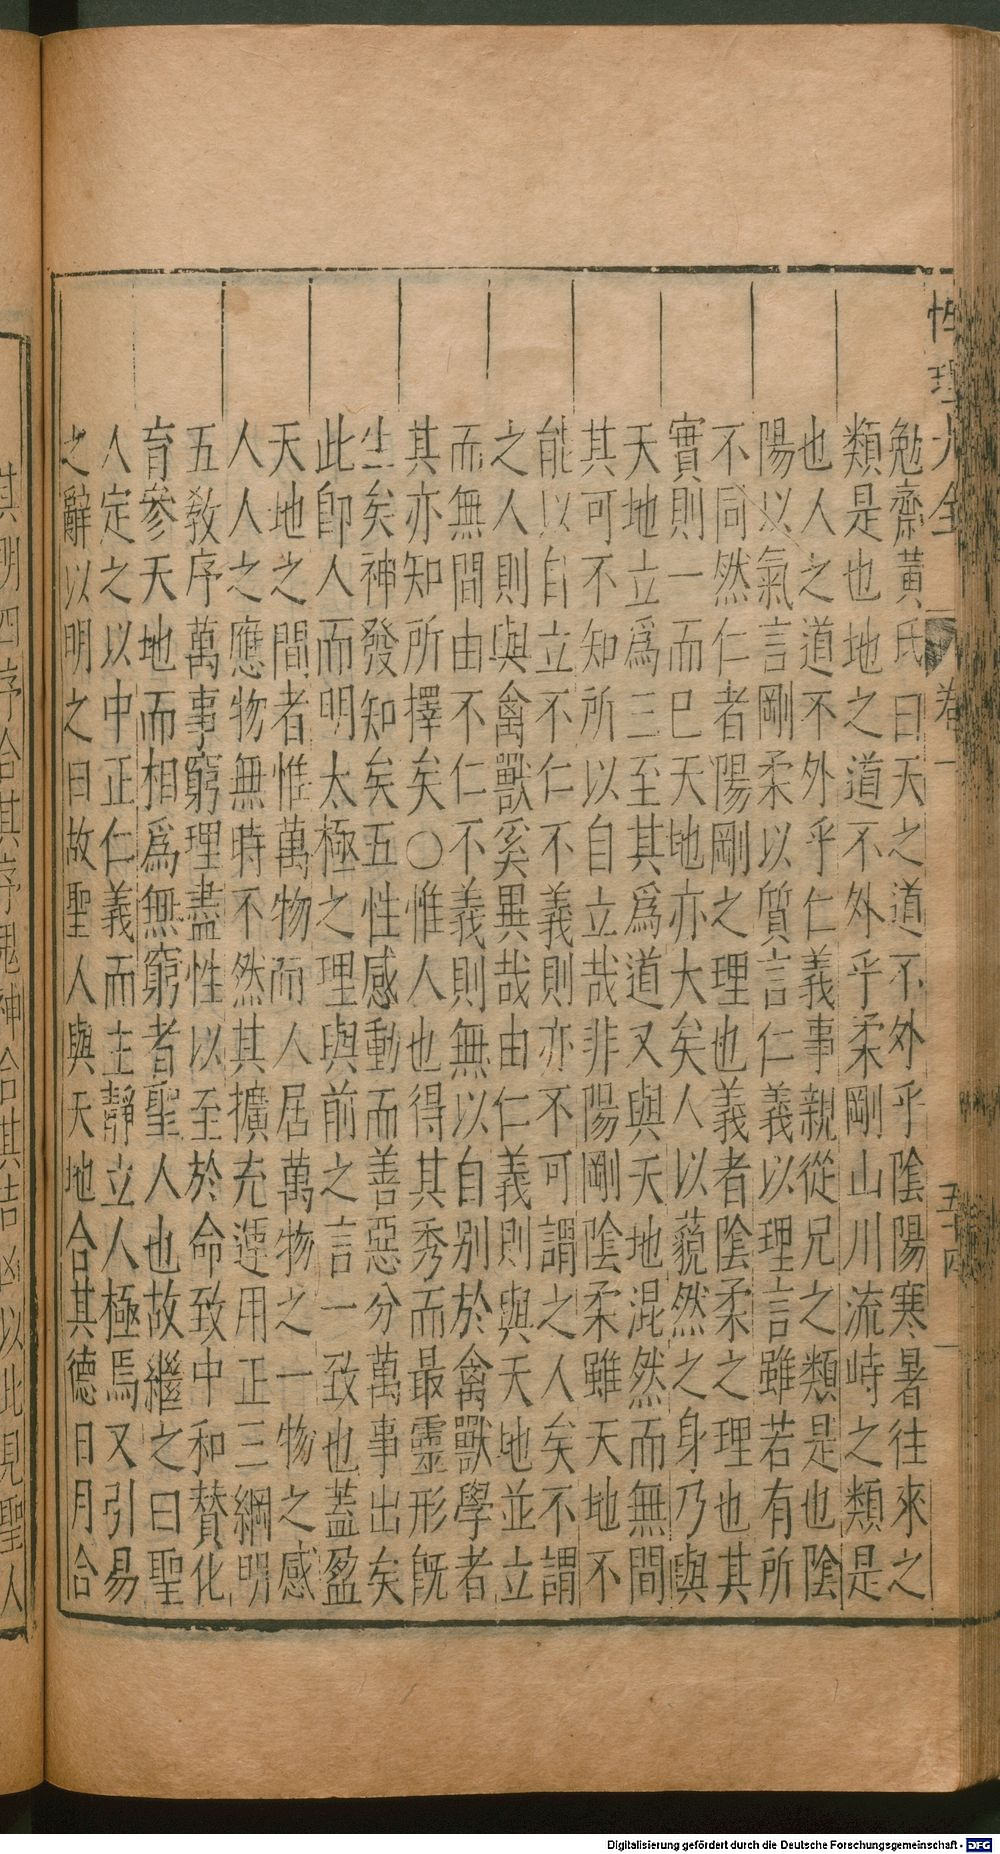 性理大全
卷一
五十四
勉齋黃氏曰天之道不外乎陰陽寒暑往來之
類是也地之道不外乎柔剛山川流峙之類是
也人之道不外乎仁義事親從兄之類是也陰
陽以氣言剛柔以質言仁義以理言雖若有所
不同然仁者陽剛之理也義者陰柔之理也其
實則一而已天地亦大矣人以藐然之身乃與
天地立爲三至其爲道又與天地混然而無間
其可不知所以自立哉非陽剛陰柔雖天地不
能以自立不仁不義則亦不可謂之人矣不謂
之人則與禽獸奚異哉由仁義則與天地並立
而無間由不仁不義則無以自别於禽獸學者
其亦知所擇矣○惟人也得其秀而最靈形旣
生矣神發知矣五性感動而善惡分萬事出矣
此卽人而明太極之理與前之言一致也蓋盈
天地之間者惟萬物而人居萬物之一物之感
人人之應物無時不然其擴充運用正三綱明
五敎序萬事窮理盡性以至於命致中和賛化
育參天地而相爲無窮者聖人也故繼之曰聖
人定之以中正仁義而主靜立人極焉又引易
之辭以明之曰故聖人與天地合其德日月合
其明四序合其序鬼神合其吉凶以此見聖人
Digitalisierung gefördert durch die Deutsche Forschungsgemeinschaft - DFG